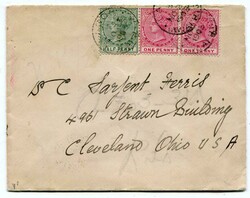 HALF PENNY
ONE PENNY
ONE PENNY
Dr Sargent Ferris
4961 Strawn Building
Cleveland Ohio USA